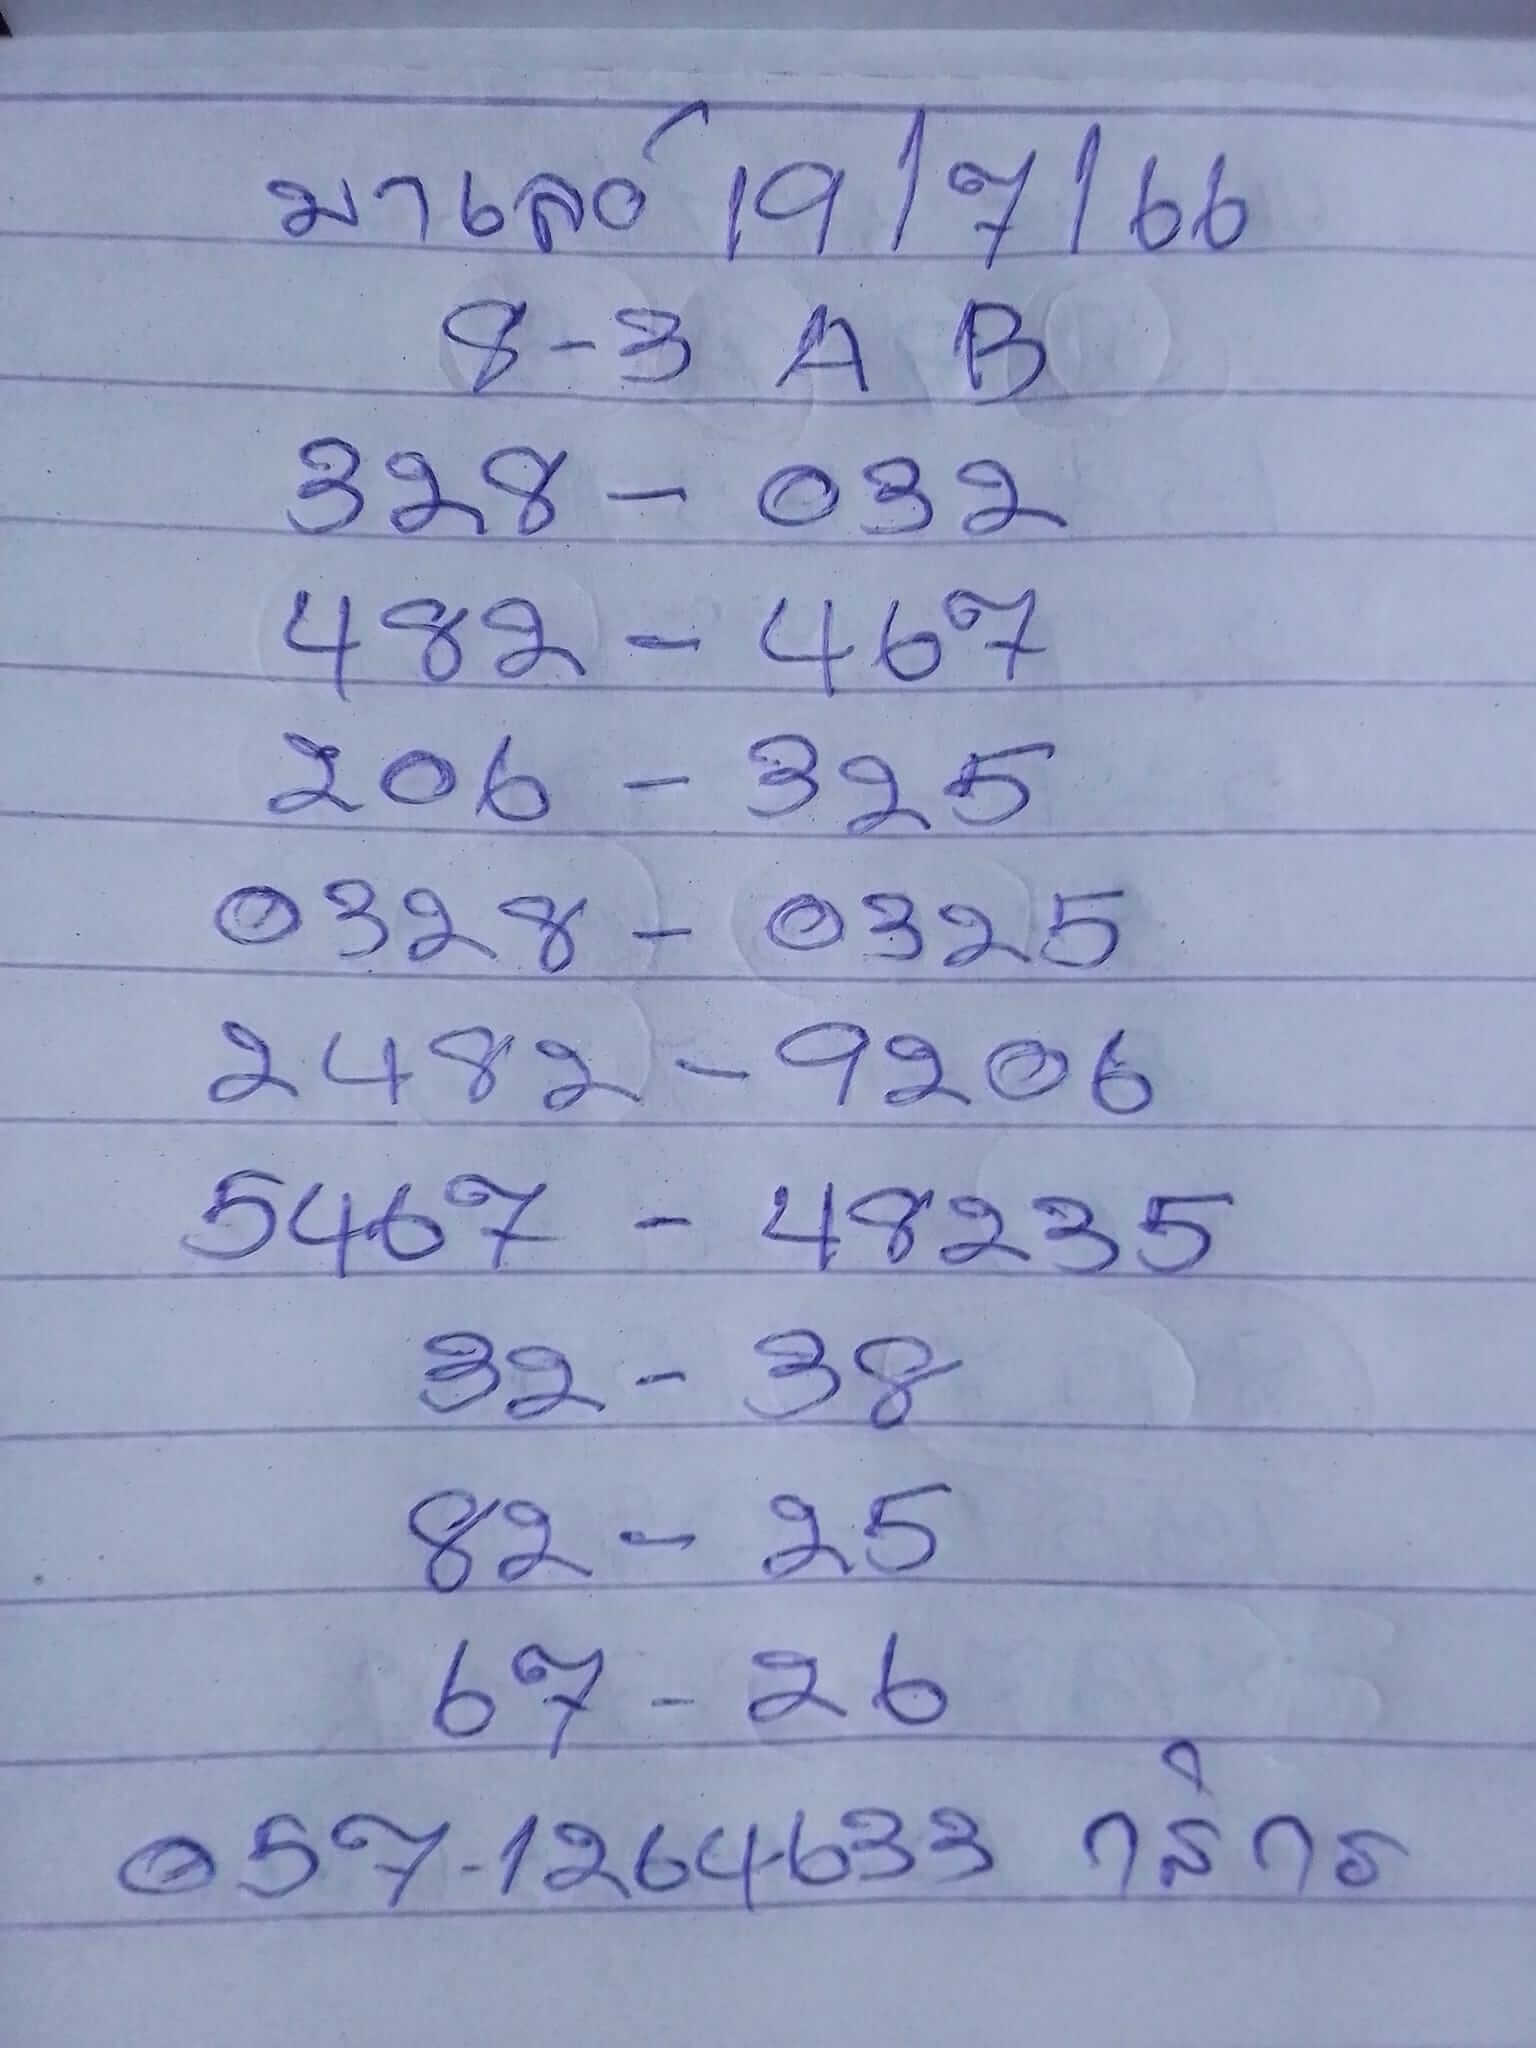 มาเลย์ 19/7/66
8-3 A B
328 - 032
482 - 467
206 - 325
0328 - 0325
2482 - 9206
5467 - 48235
32 - 38
82 - 25
67 - 26
057-1264633 กสิกร